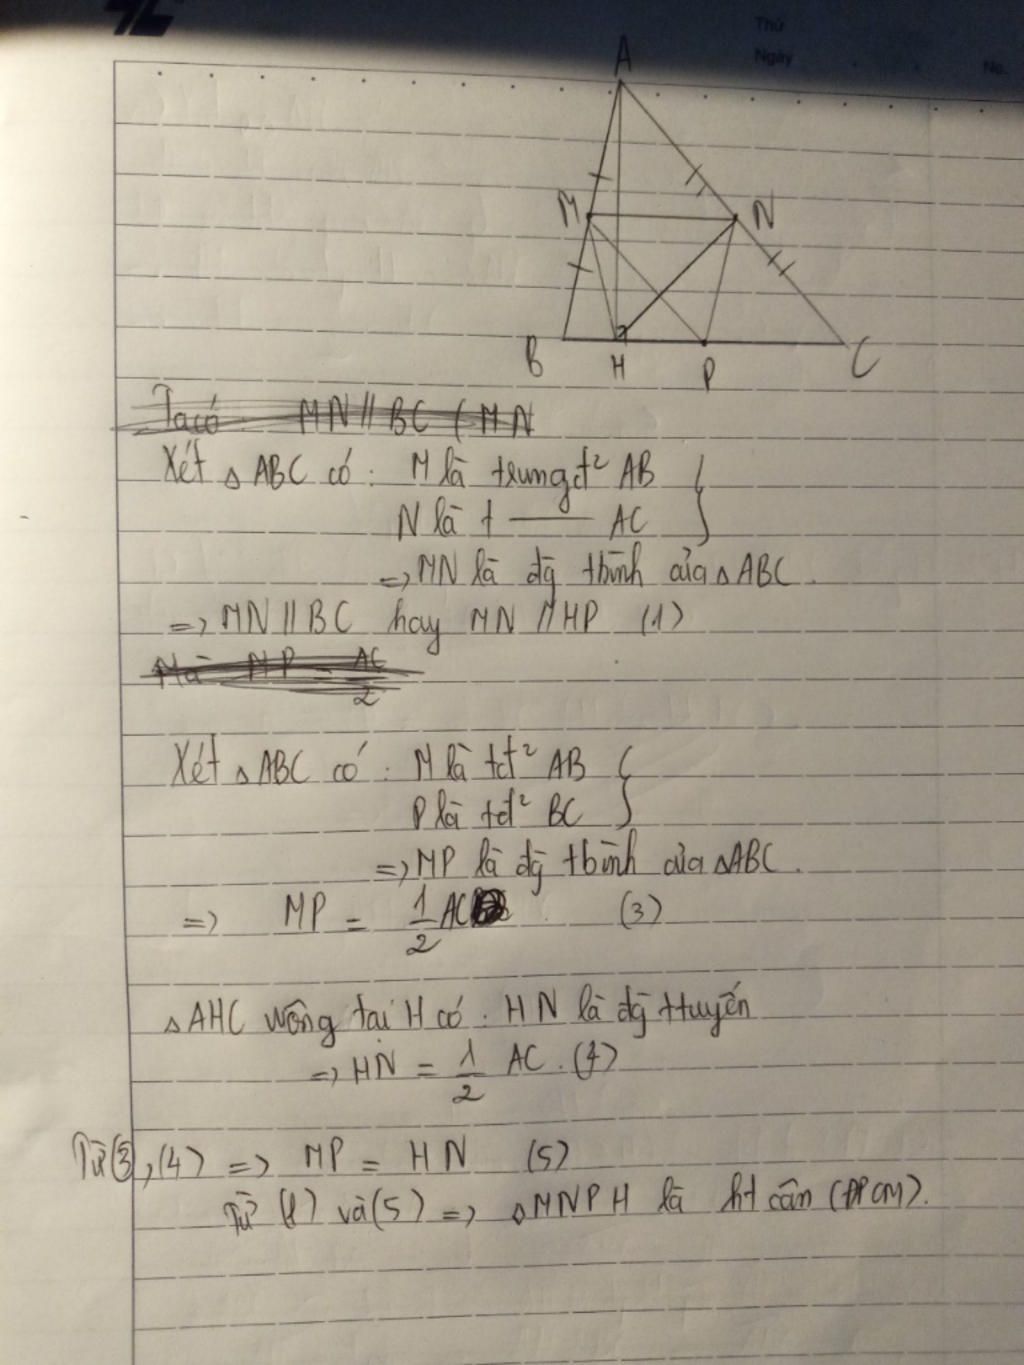 Thứ
Ngày
No.
A
M N
B H P C
Ta có MN // BC ( MN
Xét △ ABC có : M là trungđ² AB
N là t —— AC
=> MN là đg tbình của △ ABC .
=> MN // BC hay MN // HP (1)
Mà MP = AC/2
Xét △ ABC có : M là tđ² AB
P là tđ² BC
=> MP là đg tbình của △ABC .
=> MP = 1/2 AC (3)
△ AHC vuông tại H có : HN là đg ttuyến
=> HN = 1/2 AC . (4)
Từ (3) , (4) => MP = HN (5)
Từ (1) và (5) => △ MNPH là ht cân (ĐPCM).